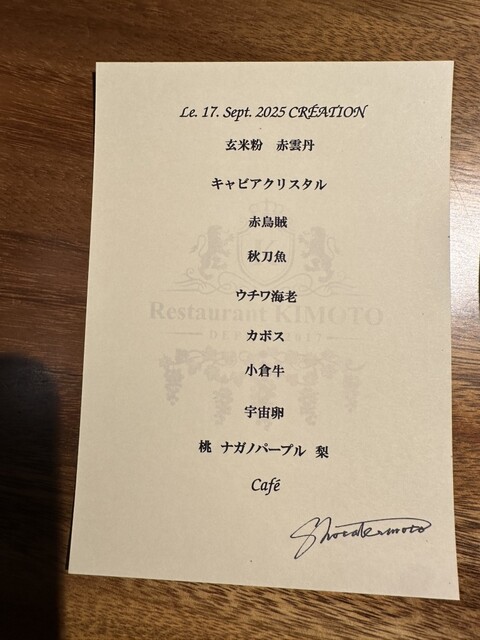 Le. 17. Sept. 2025 CRÉATION
玄米粉　赤雲丹
キャビアクリスタル
赤烏賊
秋刀魚
ウチワ海老
Restaurant KIMOTO
カボス
小倉牛
宇宙卵
桃 ナガノパープル 梨
Café